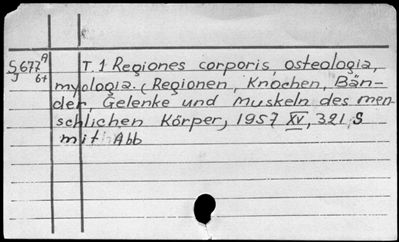 S 677 A T. 1 Regiones corporis, osteologia,
J 64 myologia. (Regionen, Knochen, Bän-
der, Gelenke und Muskeln des men
schlichen Körper, 1957 XV, 321 S
mit Abb